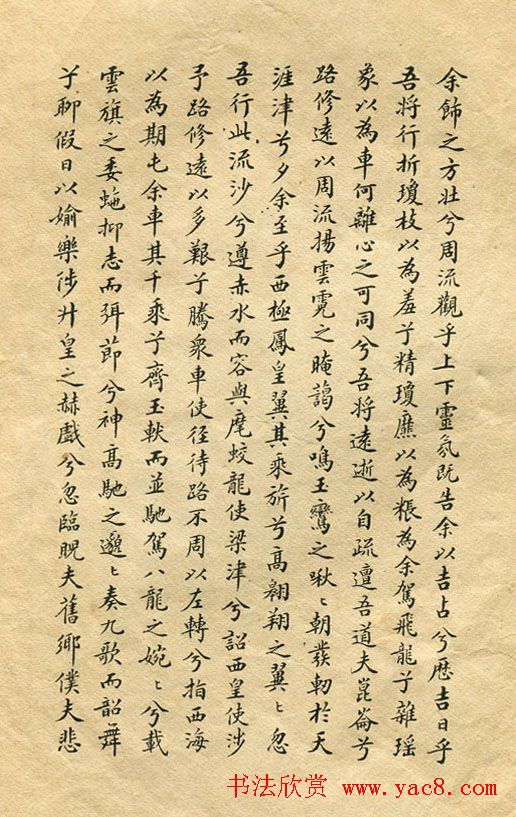 余飾之方壯兮周流觀乎上下靈氛既告余以吉占兮歷吉日乎
吾將行折瓊枝以為羞兮精瓊爢以為粻為余駕飛龍兮雜瑤
象以為車何離心之可同兮吾將遠逝以自疏邅吾道夫崑崙兮
路修遠以周流揚雲霓之晻藹兮鳴玉鸞之啾〻朝發軔於天
津兮夕余至乎西極鳳皇翼其乘旂兮高翱翔之翼〻忽
吾行此流沙兮遵赤水而容與麾蛟龍使梁津兮詔西皇使涉
予路修遠以多艱兮騰眾車使徑待路不周以左轉兮指西海
以為期屯余車其千乘兮齊玉軑而並馳駕八龍之婉〻兮載
雲旗之委蛇抑志而弭節兮神高馳之邈〻奏九歌而韶舞
兮聊假日以媮樂陟升皇之赫戲兮忽臨睨夫舊鄉僕夫悲
书法欣赏 www.yac8.com